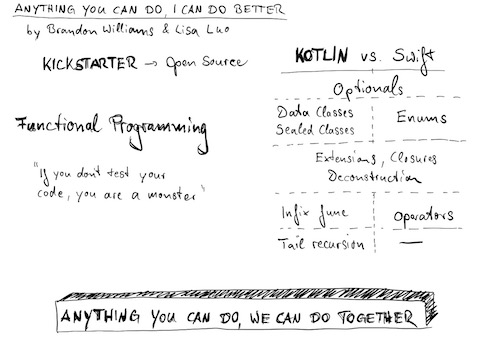 ANYTHING YOU CAN DO, I CAN DO BETTER
by Brandon Williams & Lisa Luo
KICKSTARTER → Open Source
Functional Programming
"If you don't test your
code, you are a monster"
KOTLIN vs. Swift
Optionals
Data Classes
Sealed Classes
Enums
Extensions, Closures
Deconstruction
Infix func
Operators
Tail recursion
—
ANYTHING YOU CAN DO, WE CAN DO TOGETHER